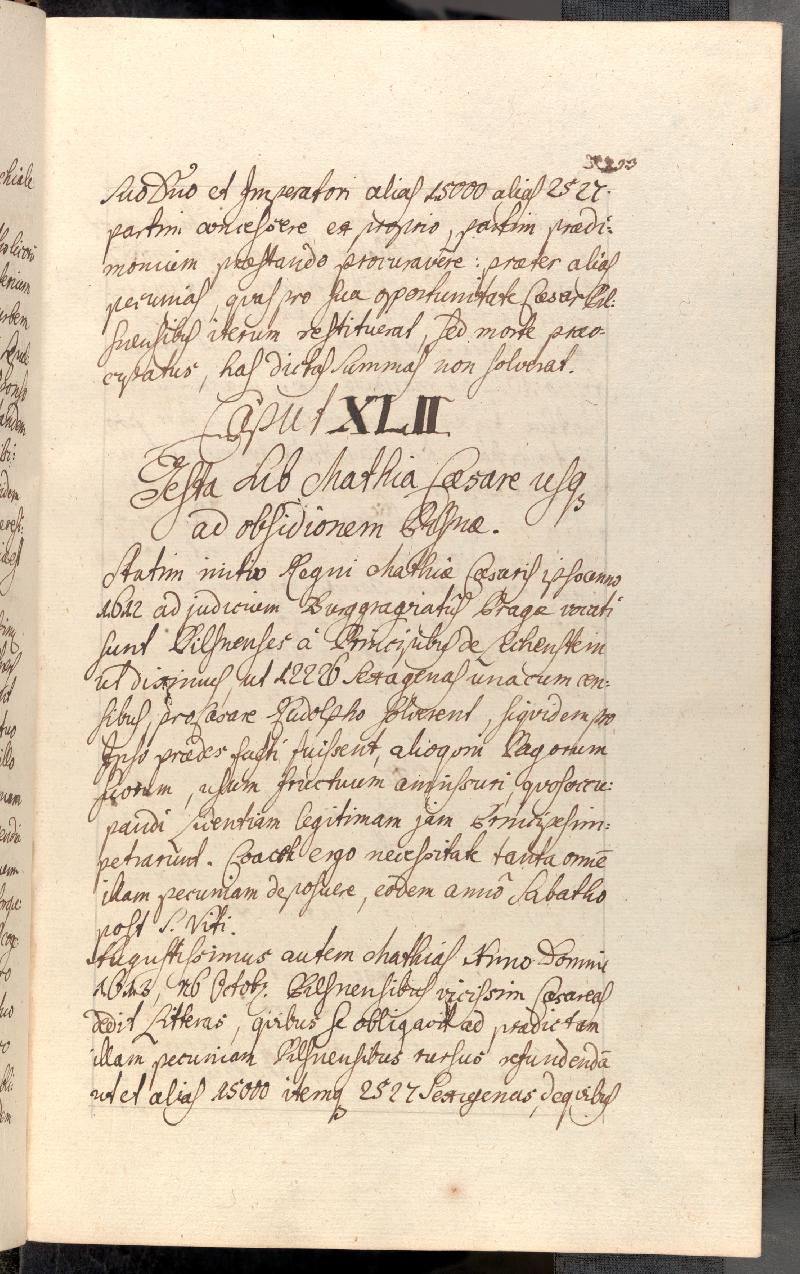 suo Dn̄o et Imperatori alias 15000 alias 2527.
partim concessere ex proprio, partim prædi:
monium præstando procuravēre: præter alias
pecunias, quas pro sua oportunitate Cæsar Pil:
snensibus iterum restituerat, sed morte præo-
cupatus, has dictas summas non solverat.
Caput XLII
Gesta sub Mathia Cæsare usq
ad obsidionem Pilsnæ.
Statim initio Regni Mathiæ Cæsaris ipso anno
1612 ad judicium Burggraviatus Pragæ vocati
sunt Pilsnenses à Principibus de Lichenstein
ut diximus, ut 12226 Sexagenas una cum cen:
sibus pro Cæsare Rudolpho solverent, siqvidem pro
Ipso prædes facti fuissent, alioqvin Pagorum
suorum, usum fructuum amissuri, quos occu:
pandi licentiam legitimam jam Principes im:
petrarunt. Coacti ergo necessitate tanta omē
illam pecuniam deposuere, eodem anno Sabatho
post S. Viti.
Augustissimus autem Mathias Anno Domini
1613, 26 Octob. Pilsnensibus vicissim Cæsareas
dedit Litteras, qvibus se obligavit ad prædictam
illam pecuniam Pilsnensibus rursus refundendā
ut et alias 15000 itemq 2527 Sexagenas, de qvibus